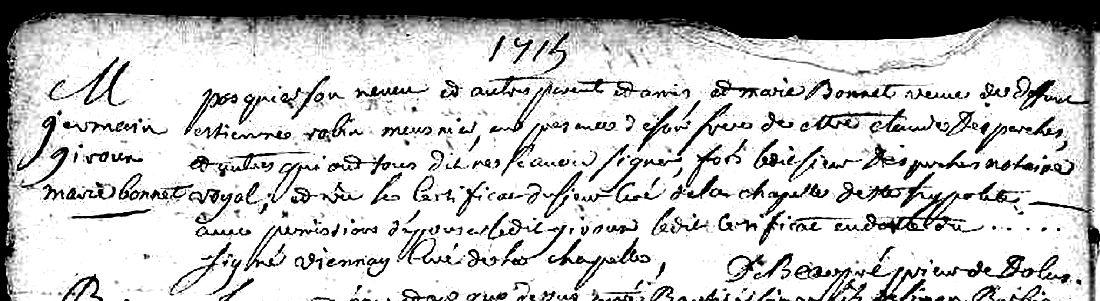 1715
M
germain
giroux
marie bonnet
pasquier son neveu et autres parents et amis, et marie Bonnet veuve de deffunt
estienne robin meusnier, en presence d' son frere de Mtre claude Desperches,
et autres qui ont tous dit ne sçavoir signer, fors ledit sieur Desperches notaire
royal; et vu le Certificat du sieur Curé de la chapelle de st hypolite
avec permission d'épouser ledit giroux ledit Certificat en datte du ......
signé viennay Curé de la chapelle,
Beaupré prieur de Dolus.
que dessus Baptisé